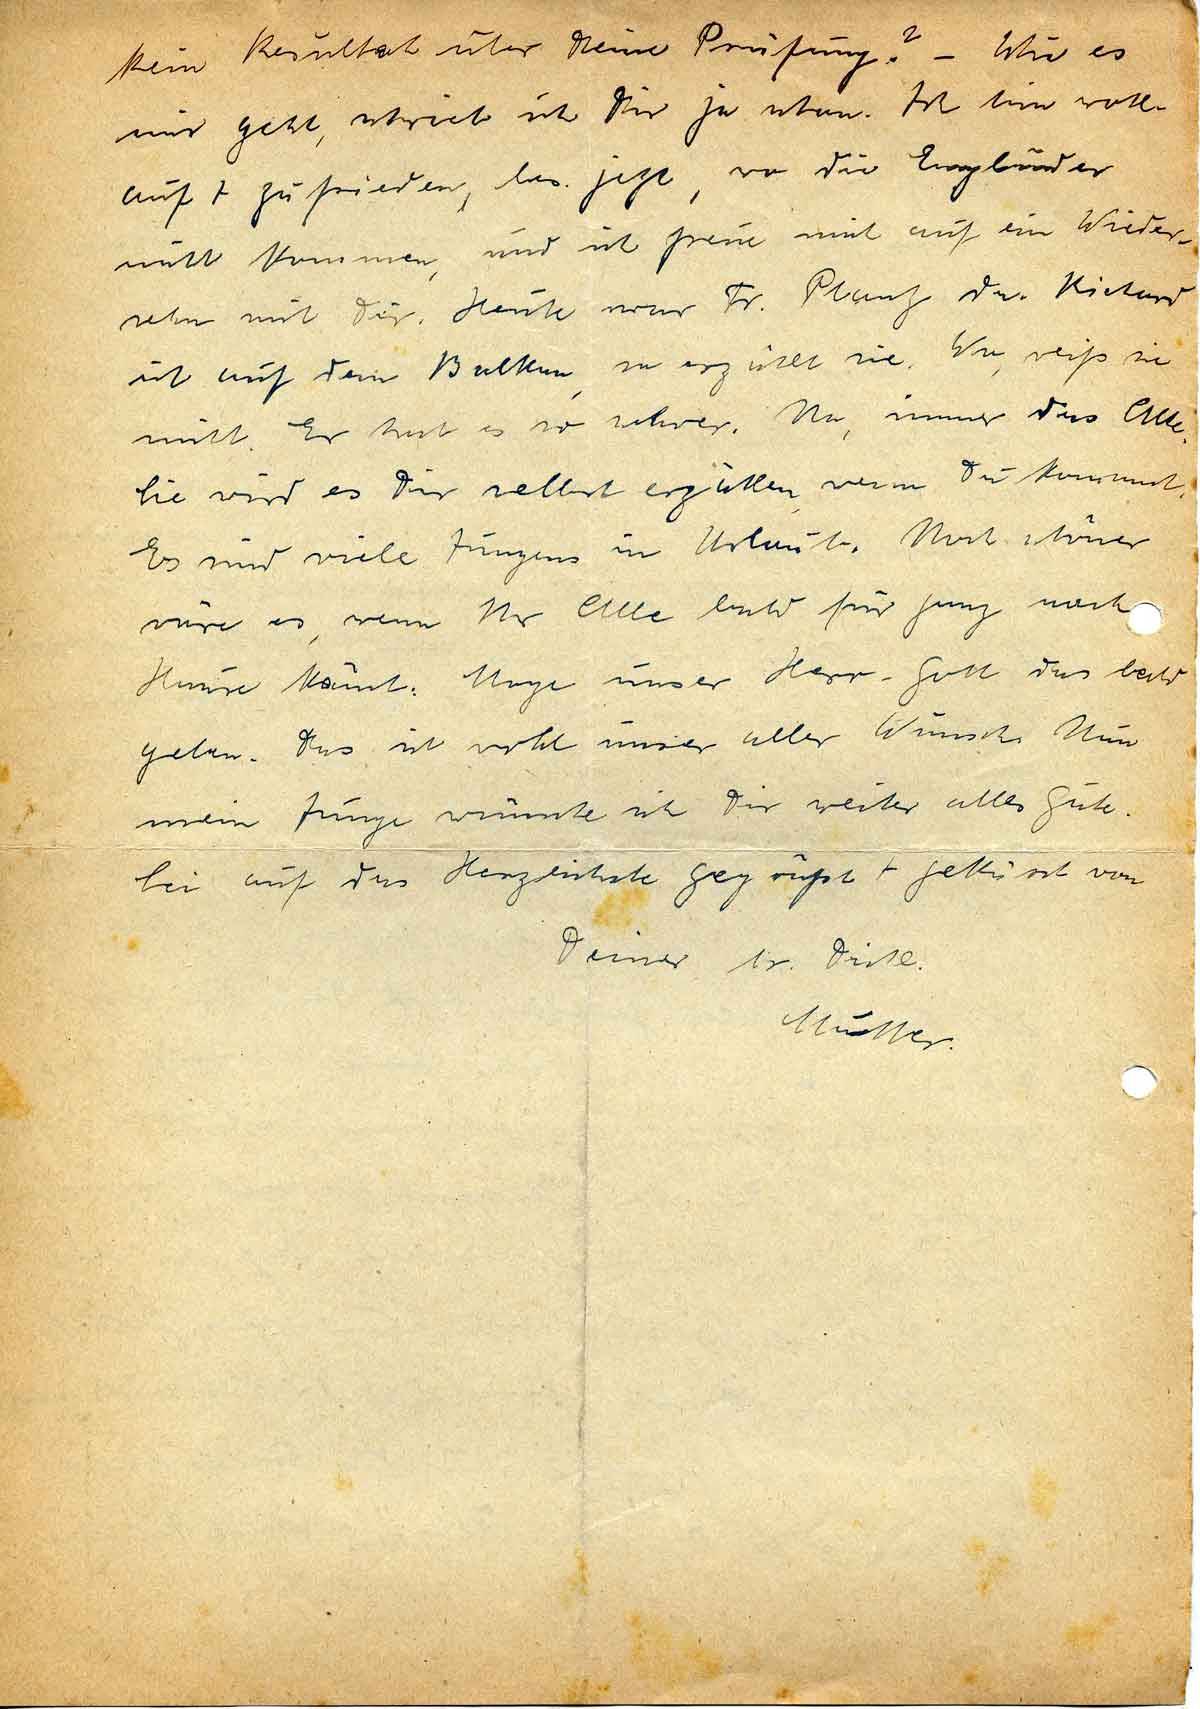 kein Resultat über Deine Prüfung? – Wie es
mir geht, schrieb ich Dir ja schon. Ich bin wohl-
auf + zufrieden, bes. jetzt, wo die Engländer
nicht kommen, und ich freue mich auf ein Wieder-
sehn mit Dir. Heute war Fr. da. Richard
ist auf dem Balkan, so erzählt sie. Wo, weiß sie
nicht. Er hat es so schwer. Na, immer das Alte.
Sie wird es Dir selbst erzählen, wenn Du kommst.
Es sind viele Jungens in Urlaub. Noch schöner
wäre es, wenn Ihr Alle bald für ganz nach
Hause kämt. Möge unser Herr-Gott das bald
geben. Das ist wohl unser aller Wunsch. Nun
mein Junge wünsche ich Dir weiter alles Gute.
Sei auf das Herzlichste gegrüßt + geküsst von
Deiner tr. Dich l.
Mutter.